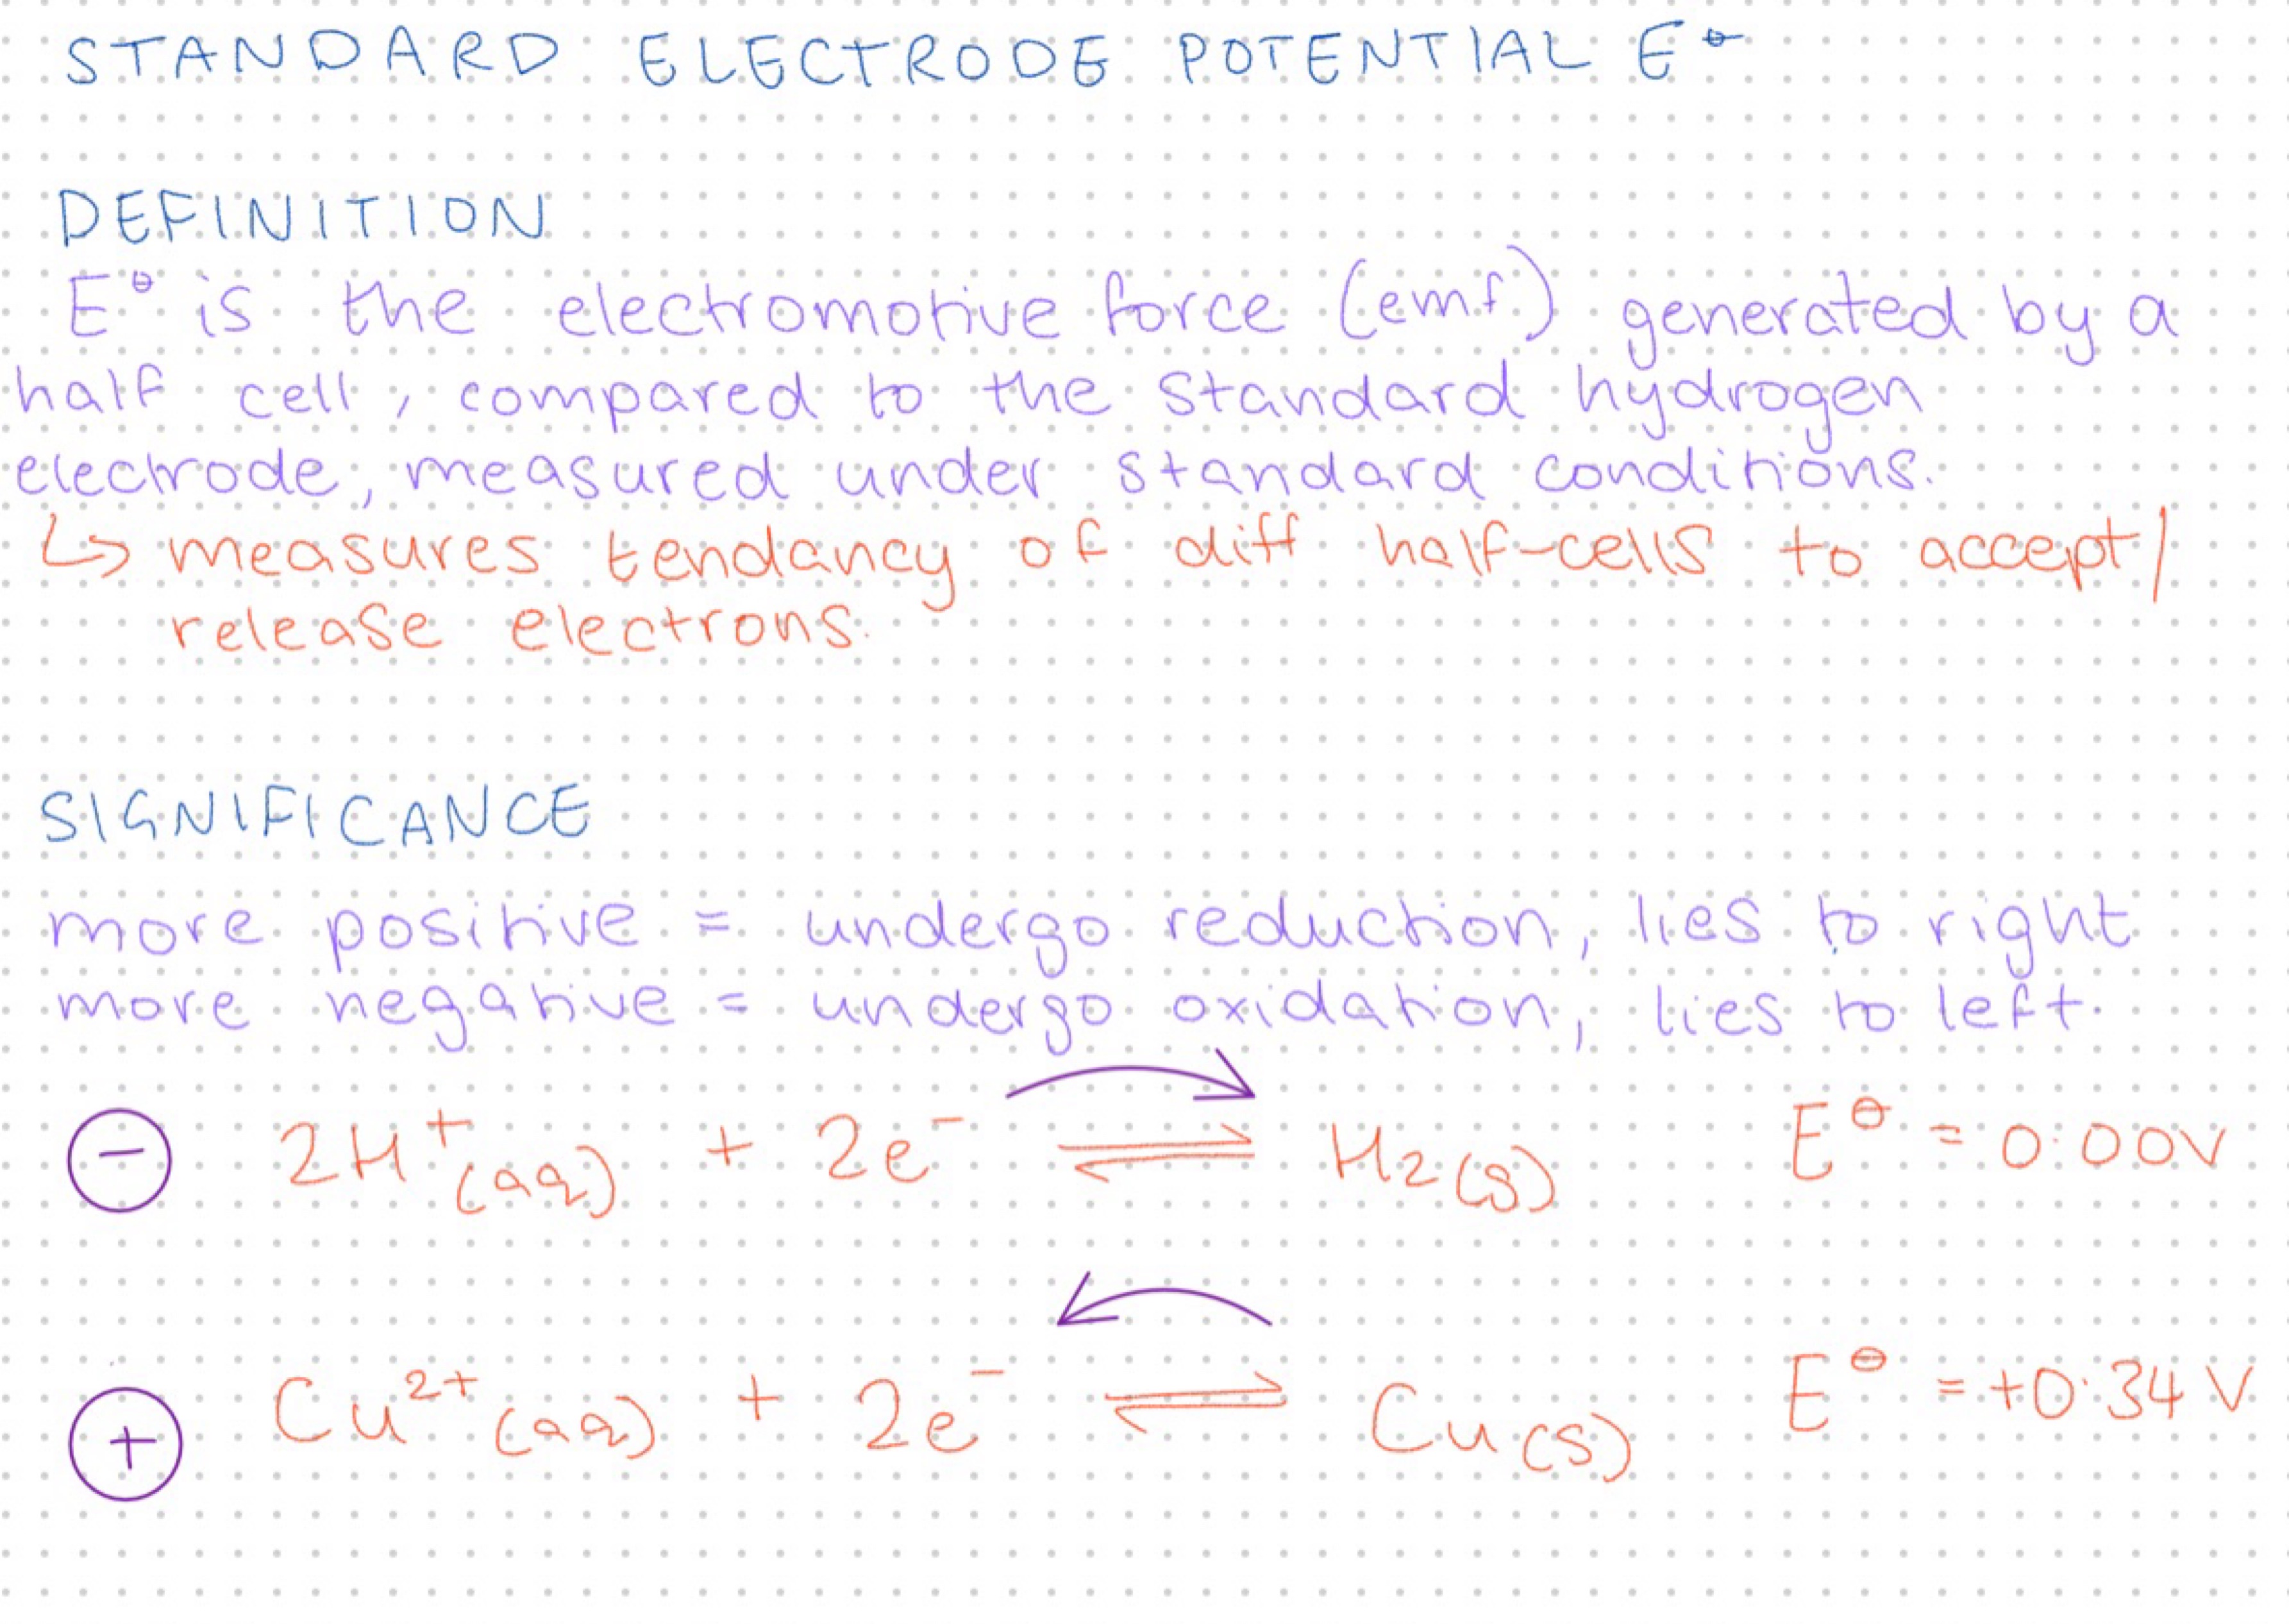 STANDARD ELECTRODE POTENTIAL E⦵
DEFINITION
E⦵ is the electromotive force (emf) generated by a
half cell, compared to the standard hydrogen
electrode, measured under standard conditions.
↳ measures tendancy of diff half-cells to accept/
release electrons.
SIGNIFICANCE
more positive = undergo reduction, lies to right
more negative = undergo oxidation, lies to left.
⊖ 2H⁺(aq) + 2e⁻ ⇌ H₂(g) E⦵ = 0.00V
⊕ Cu²⁺(aq) + 2e⁻ ⇌ Cu(s) E⦵ = +0.34V